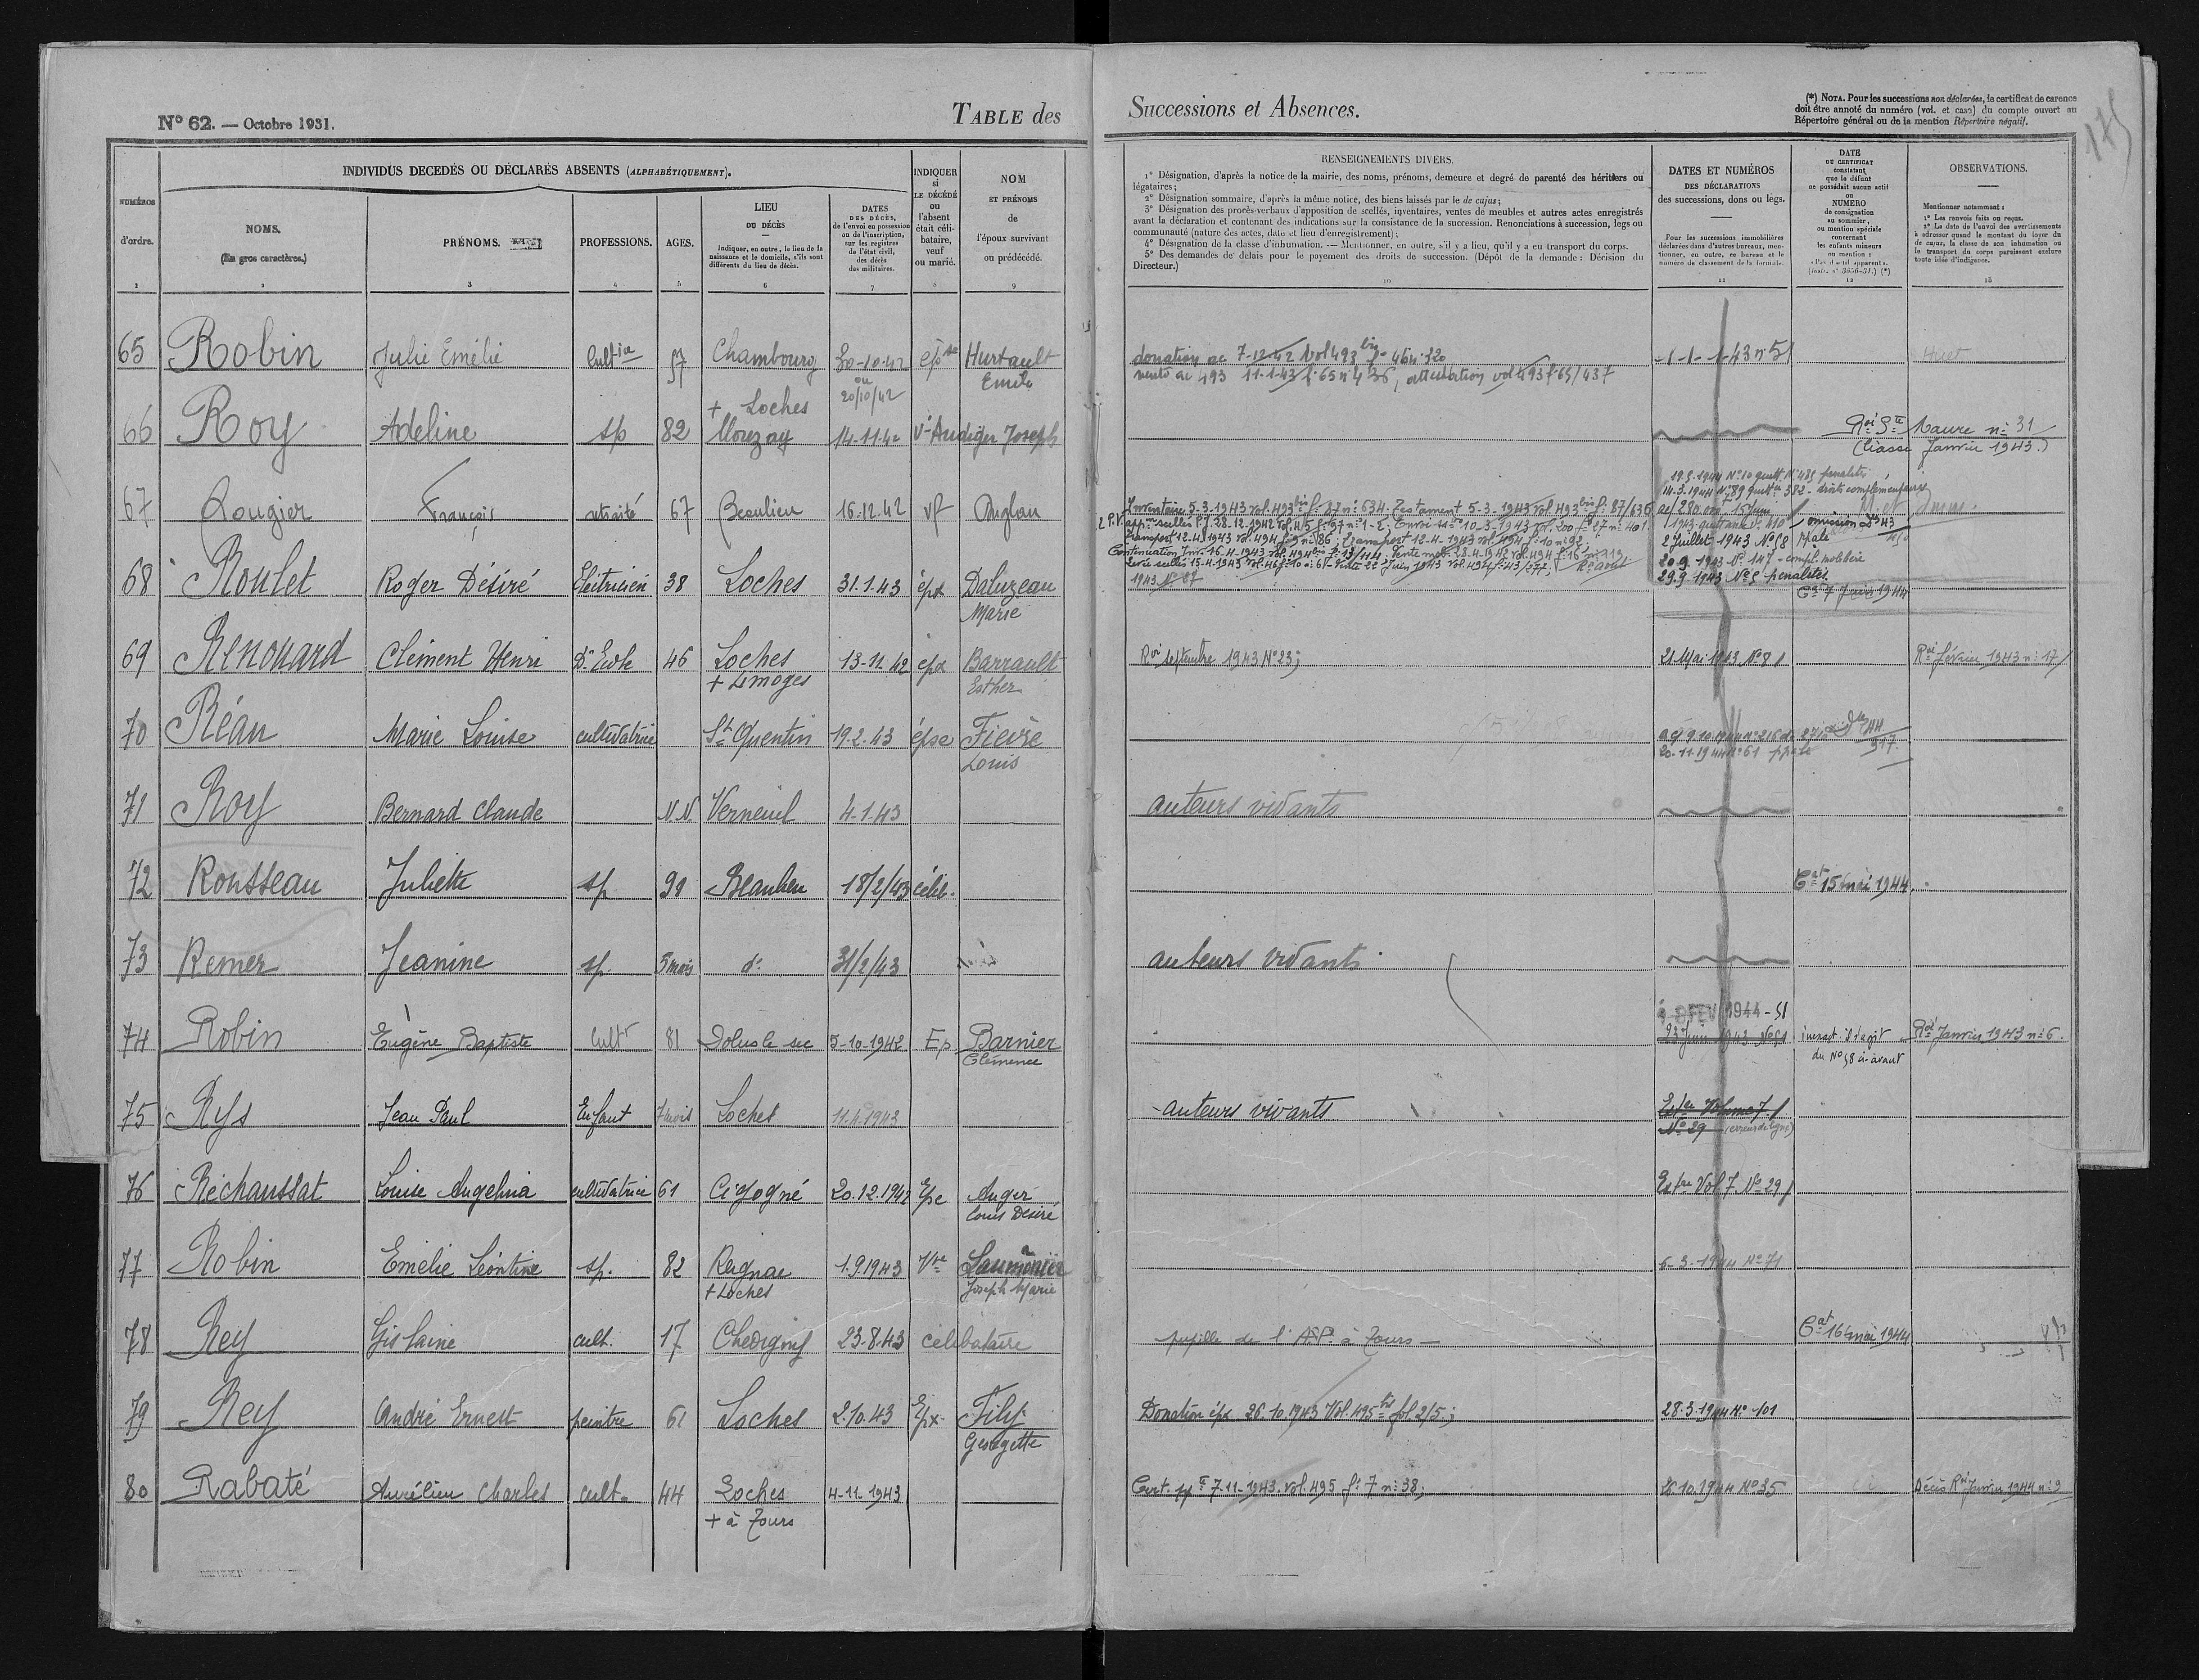 N° 62. — Octobre 1931.
TABLE des
Successions et Absences.
(*) NOTA. Pour les successions non déclarées, le certificat de carence
doit être annoté du numéro (vol. et case) du compte ouvert au
Répertoire général ou de la mention Répertoire négatif.
175
NUMÉROS
d'ordre.
1
INDIVIDUS DÉCÉDÉS OU DÉCLARÉS ABSENTS (ALPHABÉTIQUEMENT).
NOMS.
(En gros caractères.)
2
PRÉNOMS.
3
PROFESSIONS.
4
AGES.
5
LIEU
DU DÉCÈS
Indiquer, en outre, le lieu de la
naissance et le domicile, s'ils sont
différents du lieu de décès.
6
DATES
DES DÉCÈS,
de l'envoi en possession
ou de l'inscription,
sur les registres
de l'état civil,
des décès
des militaires.
7
INDIQUER
si
LE DÉCÉDÉ
ou
l'absent
était céli-
bataire,
veuf
ou marié.
8
NOM
ET PRÉNOMS
de
l'époux survivant
ou prédécédé.
9
RENSEIGNEMENTS DIVERS.
1° Désignation, d'après la notice de la mairie, des noms, prénoms, demeure et degré de parenté des héritiers ou
légataires;
2° Désignation sommaire, d'après la même notice, des biens laissés par le de cujus;
3° Désignation des procès-verbaux d'apposition de scellés, inventaires, ventes de meubles et autres actes enregistrés
avant la déclaration et contenant des indications sur la consistance de la succession. Renonciations à succession, legs ou
communauté (nature des actes, date et lieu d'enregistrement);
4° Désignation de la classe d'inhumation. — Mentionner, en outre, s'il y a lieu, qu'il y a eu transport du corps.
5° Des demandes de délais pour le payement des droits de succession. (Dépôt de la demande: Décision du
Directeur.)
10
DATES ET NUMÉROS
DES DÉCLARATIONS
des successions, dons ou legs.
Pour les successions immobilières
déclarées dans d'autres bureaux, men-
tionner, en outre, ce bureau et le
numéro de classement de la formule.
11
DATE
DU CERTIFICAT
constatant
que le défunt
ne possédait aucun actif
ou
NUMERO
de consignation
au sommier,
ou mention spéciale
concernant
les enfants mineurs
ou mention :
«Pas d'actif apparent».
(Instr. n° 3656-31.) (*)
12
OBSERVATIONS.
Mentionner notamment :
1° Les renvois faits ou reçus.
2° La date de l'envoi des avertissements
à adresser quand le montant du loyer du
de cujus, la classe de son inhumation ou
le transport du corps paraissent exclure
toute idée d'indigence.
13
65 Robin Julie Emélie Cultice 57 Chambourg 30-10-42 ou 20/10/42 épse Hurtault Emile
donation ac 7-12-42 Vol 493 bis f° 46 n° 320
11-1-43 f° 65 n° 436, attestation vol 493 f° 65/437
-1-1-43 n° 51
Huet
66 Roy Adeline sp 82 + Loches Mouzay 14-11-42 Ve Audiger Joseph
Roi Ste Maure n° 31
(Classe Janvier 1943.)
67 Rougier François retraité 67 Beaulieu 16-12-42 vf Duglau
Inventaire 5-3-1943 vol. 493 bis f° 87 n° 634. Testament 5-3-1943 vol 493 bis f° 87/636
Transport 12-4-1943 vol. 494 f° 9 n° 86; transport 12-4-1943 vol 494 f° 10 n° 92
1943 N° 87
14-3-1944 N° 89 382 - droits complémentaires
2 Juillet 1943 N° 58
20-9-1943 N° 147 - compl. mobilière
29-9-1943 N° 5 penalités
68 Roulet Roger Désiré Electricien 38 Loches 31.1.43 épx Daluzeau Marie
Cat 7 Juin 1944
69 Renouard Clément Henri Dr Ecole 46 Loches + Limoges 13-12 42 épx Barrault Esther
Roi septembre 1943 N° 23;
21 Mai 1943 N° 8
Roi février 1943 n° 17
70 Réau Marie Louise cultivatrice St Quentin 19.2.43 épse Fièvre Louis
20-11-1944 n° 61
71 Roy Bernard Claude N.N. Verneuil 4-1-43
auteurs vivants
72 Rousseau Juliette sp 99 Beaulieu 18/2/43 célib.
Cat 15 mai 1944.
73 Remer Jeanine sp. 5 mois d° 31/2/43
auteurs vivants
74 Robin Eugêne Baptiste Cultr 81 Dolus le sec 5-10-1942 Ep Barnier Clémence
FEV 1944 - 51
23 Juin 1943 N° 51
inexact il s'agit
du N° 58 ci-avant
Roi Janvier 1943 n° 6.
75 Rys Jean Paul Enfant 7 mois Loches 11.4.1943
- auteurs vivants
Estre Volume 7
N° 29 (erreur de ligne)
76 Réchaussat Louise Angelina cultivatrice 61 Cigogné 20.12.1942 Epe Auger Louis Désiré
Estre Vol. 7 N° 29
77 Robin Emélie Léontine sp. 82 Reignac + Loches 1.9.1943 Vve Saumonier Joseph Marie
6-3-1944 N° 71
78 Rey Gislaine cult. 17 Chedigny 23-8-43 celibataire
pupille de l'A.P. à Tours —
Cat 16 mai 1944
79 Rey André Ernest peintre 61 Loches 2.10.43 Epx Fily Georgette
Donation épx 26.10.1943 Vol. 495 bis fol. 2/5;
28-3-1944 N° 101
80 Rabaté Aurélien Charles cult. 44 Loches + à Tours 4-11-1943
Cert. ppté 7-11-1943. vol. 495 f° 7 n° 38;
10.1944 N° 35
Décès Roi Janvier 1944 n° 9